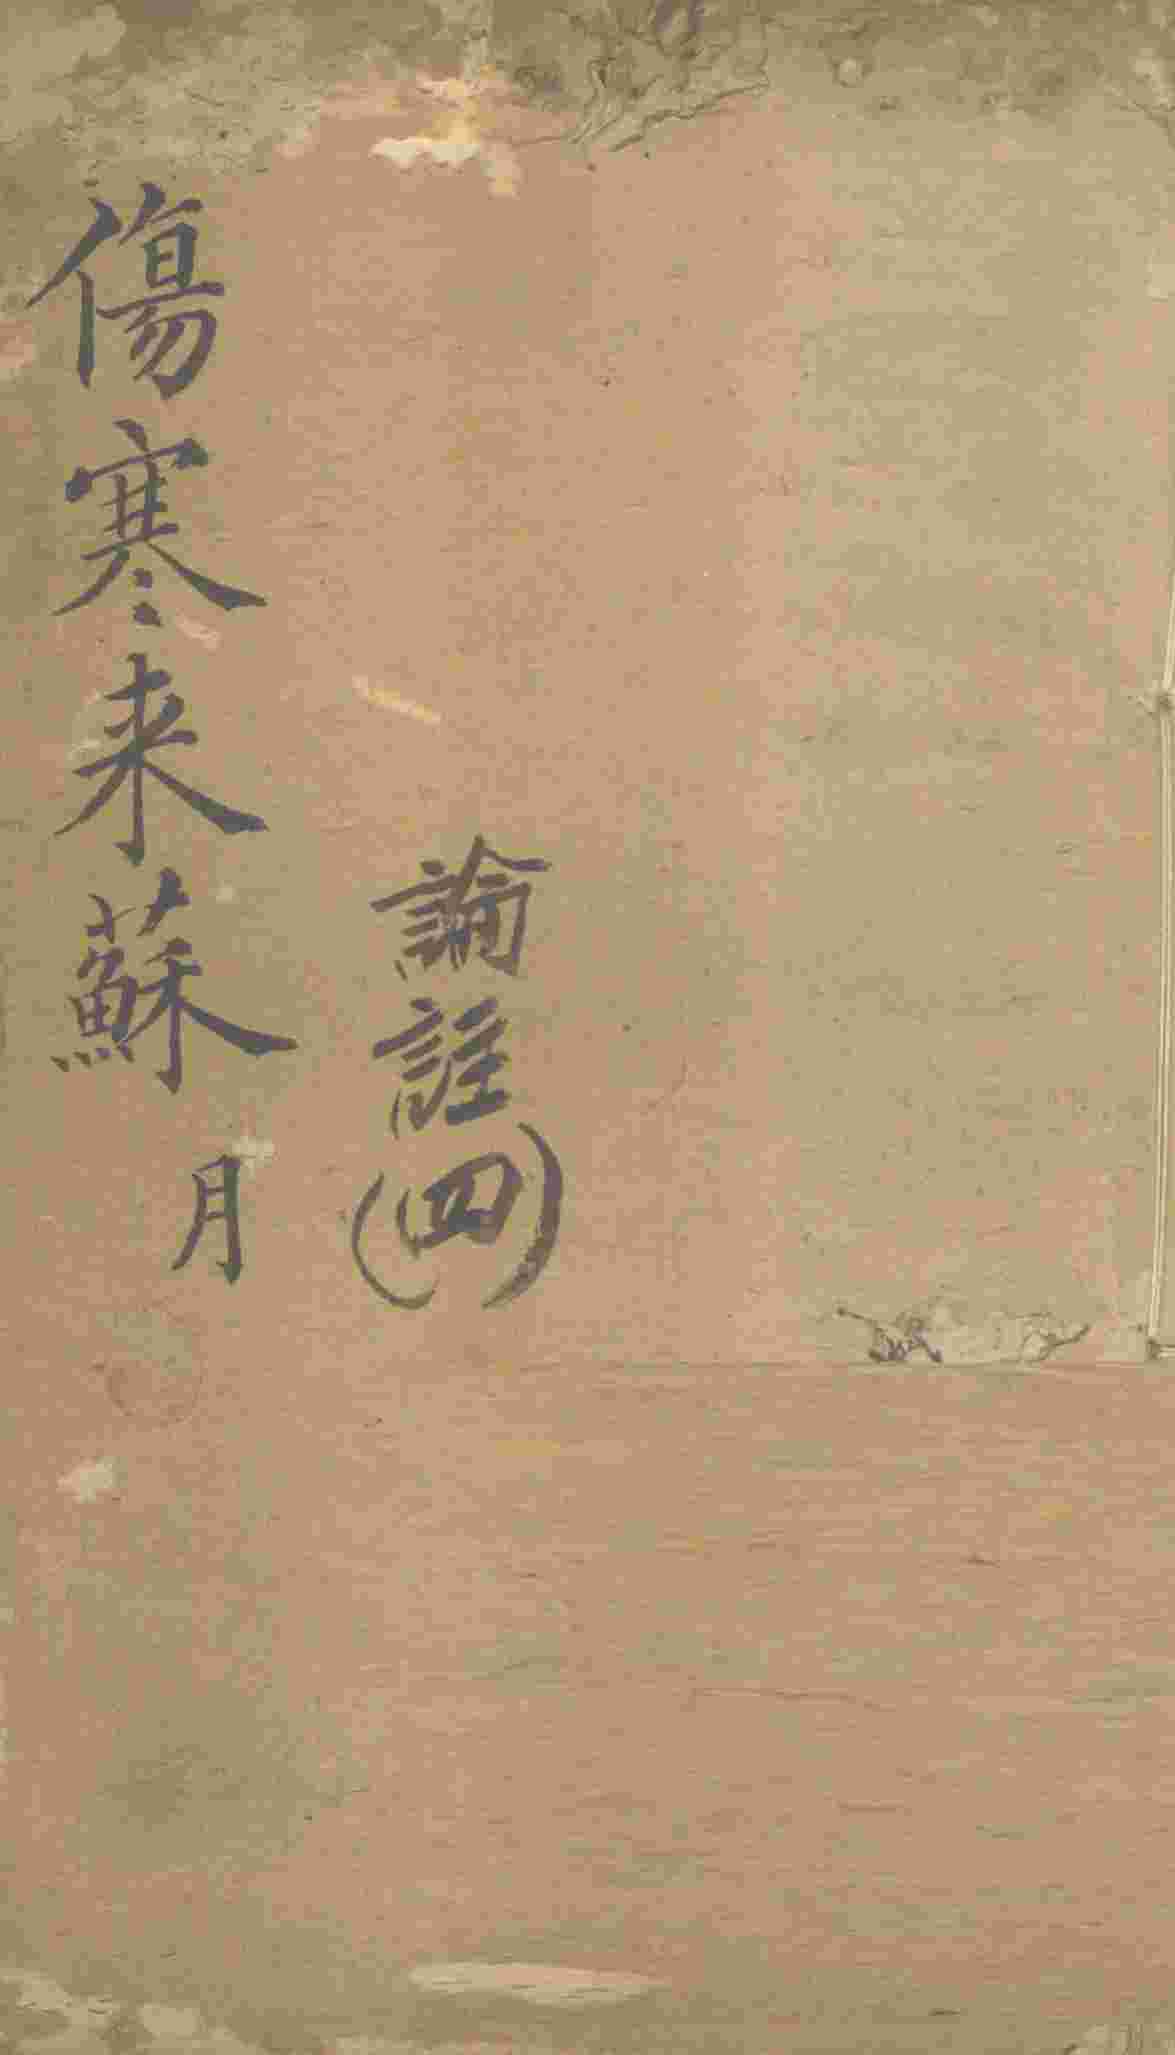 論註(四)
傷寒来蘇 月